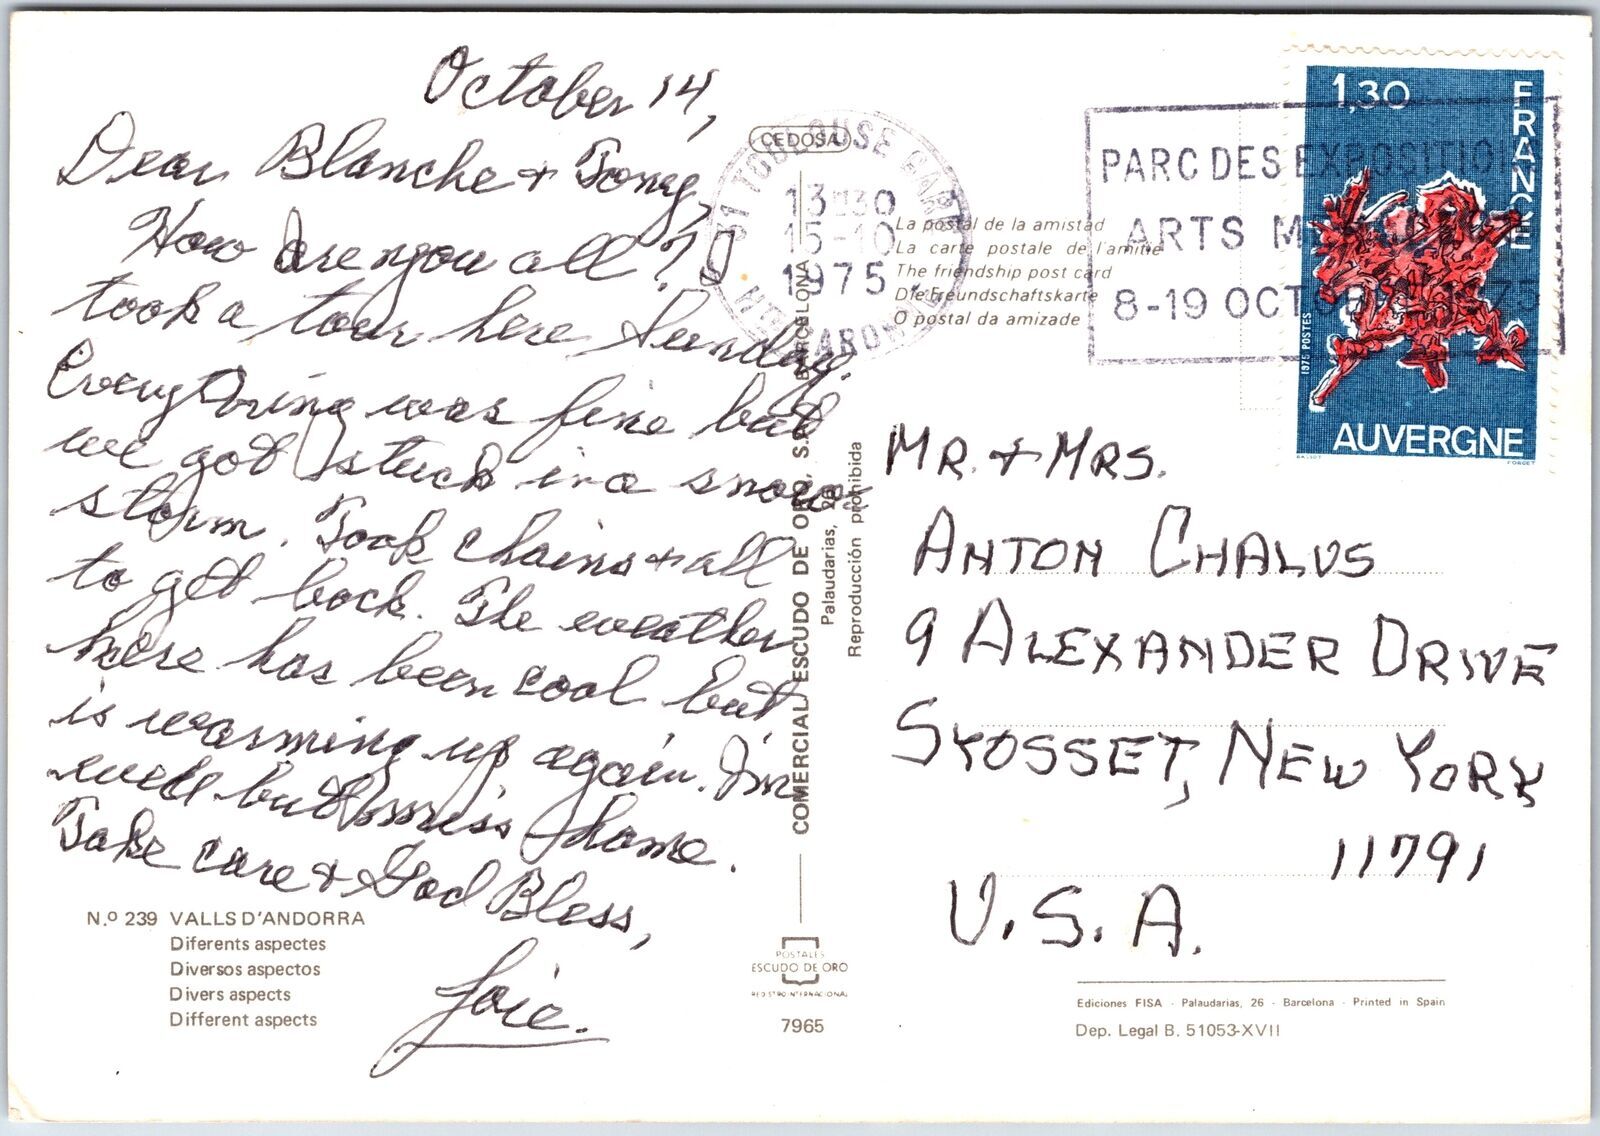 October 14,
Dear Blanche + Toney,
How are you all? I
took a tour here Sunday.
Everything was fine but
we got stuck in a snow-
storm. Took chains + all
to get back. The weather
here has been cool but
is warming up again. I'm
well but miss home.
Take care + God Bless,
Joie.
N.º 239 VALLS D'ANDORRA
Diferents aspectes
Diversos aspectos
Divers aspects
Different aspects
CEDOSA
31 TOULOUSE GARE
13H30
15-10
1975
La postal de la amistad
La carte postale de l'amitié
The friendship post card
Die Freundschaftskarte
O postal da amizade
COMERCIAL ESCUDO DE ORO, S.A. BARCELONA
Palaudarias, 26
Reproducción prohibida
POSTALES
ESCUDO DE ORO
REGISTRO INTERNACIONAL
7965
PARC DES EXPOSITION
ARTS
8-19 OCTOBRE 1975
1,30
FRANCE
1975 POSTES
AUVERGNE
FORGET
MR. + MRS.
ANTON CHALUS
9 ALEXANDER DRIVE
SYOSSET, NEW YORK
11791
U.S.A.
Ediciones FISA - Palaudarias, 26 - Barcelona - Printed in Spain
Dep. Legal B. 51053-XVII